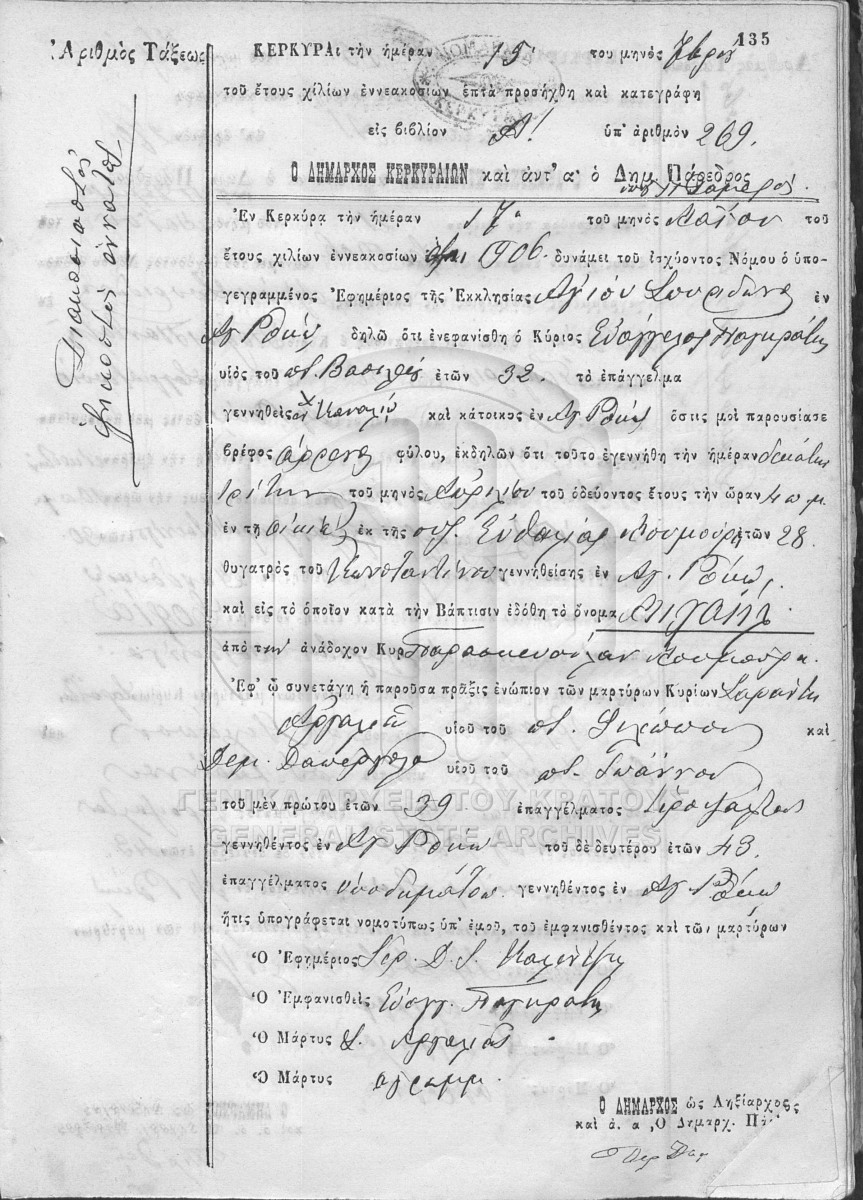 135
Ἀριθμὸς Τάξεως
Διακοσιοστὸς
ἑξηκοστὸς ἔννατος
ΚΕΡΚΥΡΑι τὴν ἡμέραν 15 του μηνὸς
τοῦ ἔτους χιλίων ἐννεακοσίων ἑπτὰ προσήχθη καὶ κατεγράφη
εἰς βιβλίον Α! ὑπ' ἀριθμὸν 269.
Ο ΔΗΜΑΡΧΟΣ ΚΕΡΚΥΡΑΙΩΝ καὶ ἀντ' α· ὁ Δημ. Πάρεδρος
Ἐν Κερκύρᾳ τὴν ἡμέραν 17 τοῦ μηνὸς Μαΐου τοῦ
ἔτους χιλίων ἐννεακοσίων 1906. δυνάμει τοῦ ἰσχύοντος Νόμου ὁ ὑπο-
γεγραμμένος Ἐφημέριος τῆς Ἐκκλησίας Ἁγίου Σπυρίδωνος ἐν
Ἁγ. Ρόκῳ δηλῶ ὅτι ἐνεφανίσθη ὁ Κύριος Εὐάγγελος Παγκράτης
υἱὸς τοῦ ποτ. Βασιλείου ἐτῶν 32. τὸ ἐπάγγελμα
γεννηθεὶς ἐν καὶ κάτοικος ἐν Ἁγ. Ρόκῳ ὅστις μοὶ παρουσίασε
βρέφος ἄρρεν φύλου, ἐκδηλῶν ὅτι τοῦτο ἐγεννήθη τὴν ἡμέραν δεκάτην
τρίτην τοῦ μηνὸς Ἀπριλίου τοῦ ὁδεύοντος ἔτους τὴν ὥραν 4 π. μ.
ἐν τῇ οἰκίᾳ ἐκ τῆς συζ. Εὐθαλίας Κουμούρη ἐτῶν 28
θυγατρὸς τοῦ Κωνσταντίνου γεννηθείσης ἐν Ἁγ. Ρόκῳ,
καὶ εἰς τὸ ὁποῖον κατὰ τὴν Βάπτισιν ἐδόθη τὸ ὄνομα Μιχαὴλ.
ἀπὸ την ἀνάδοχον Κυρ Παρασκευούλαν
Ἐφ' ᾧ συνετάγη ἡ παροῦσα πρᾶξις ἐνώπιον τῶν μαρτύρων Κυρίων Σαράντη
υἱοῦ τοῦ ποτ. Φιλίππου καὶ
Δημ. υἱοῦ τοῦ ποτ. Ἰωάννου
τοῦ μὲν πρώτου ἐτῶν 39 ἐπαγγέλματος ἱεροψάλτου
γεννηθέντος ἐν Ἁγ. Ρόκῳ τοῦ δὲ δευτέρου ἐτῶν 43.
ἐπαγγέλματος ὑποδηματοπ. γεννηθέντος ἐν Ἁγ. Ρόκῳ
ἥτις ὑπογράφεται νομοτύπως ὑπ' ἐμοῦ, τοῦ ἐμφανισθέντος καὶ τῶν μαρτύρων
Ὁ Ἐφημέριος Ἱερ. Δ. Σ.
Ὁ Ἐμφανισθεὶς Εὐάγγ. Παγκράτης
Ὁ Μάρτυς Σ.
Ὁ Μάρτυς ἀγράμμ.
Ο ΔΗΜΑΡΧΟΣ ὡς Ληξίαρχος
καὶ ἀ. α Ὁ Δημαρχ. Πά
ΓΕΝΙΚΑ ΑΡΧΕΙΑ ΤΟΥ ΚΡΑΤΟΥΣ
GENERAL STATE ARCHIVES